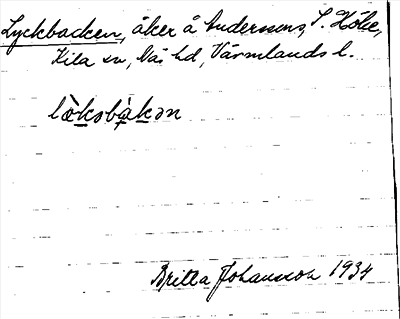 Lyckbacken, åker å Anderssons, S. Höke,
Kila sn, Näs hd, Värmlands l.
lò̱kəbàkən
Britta Johansson 1934